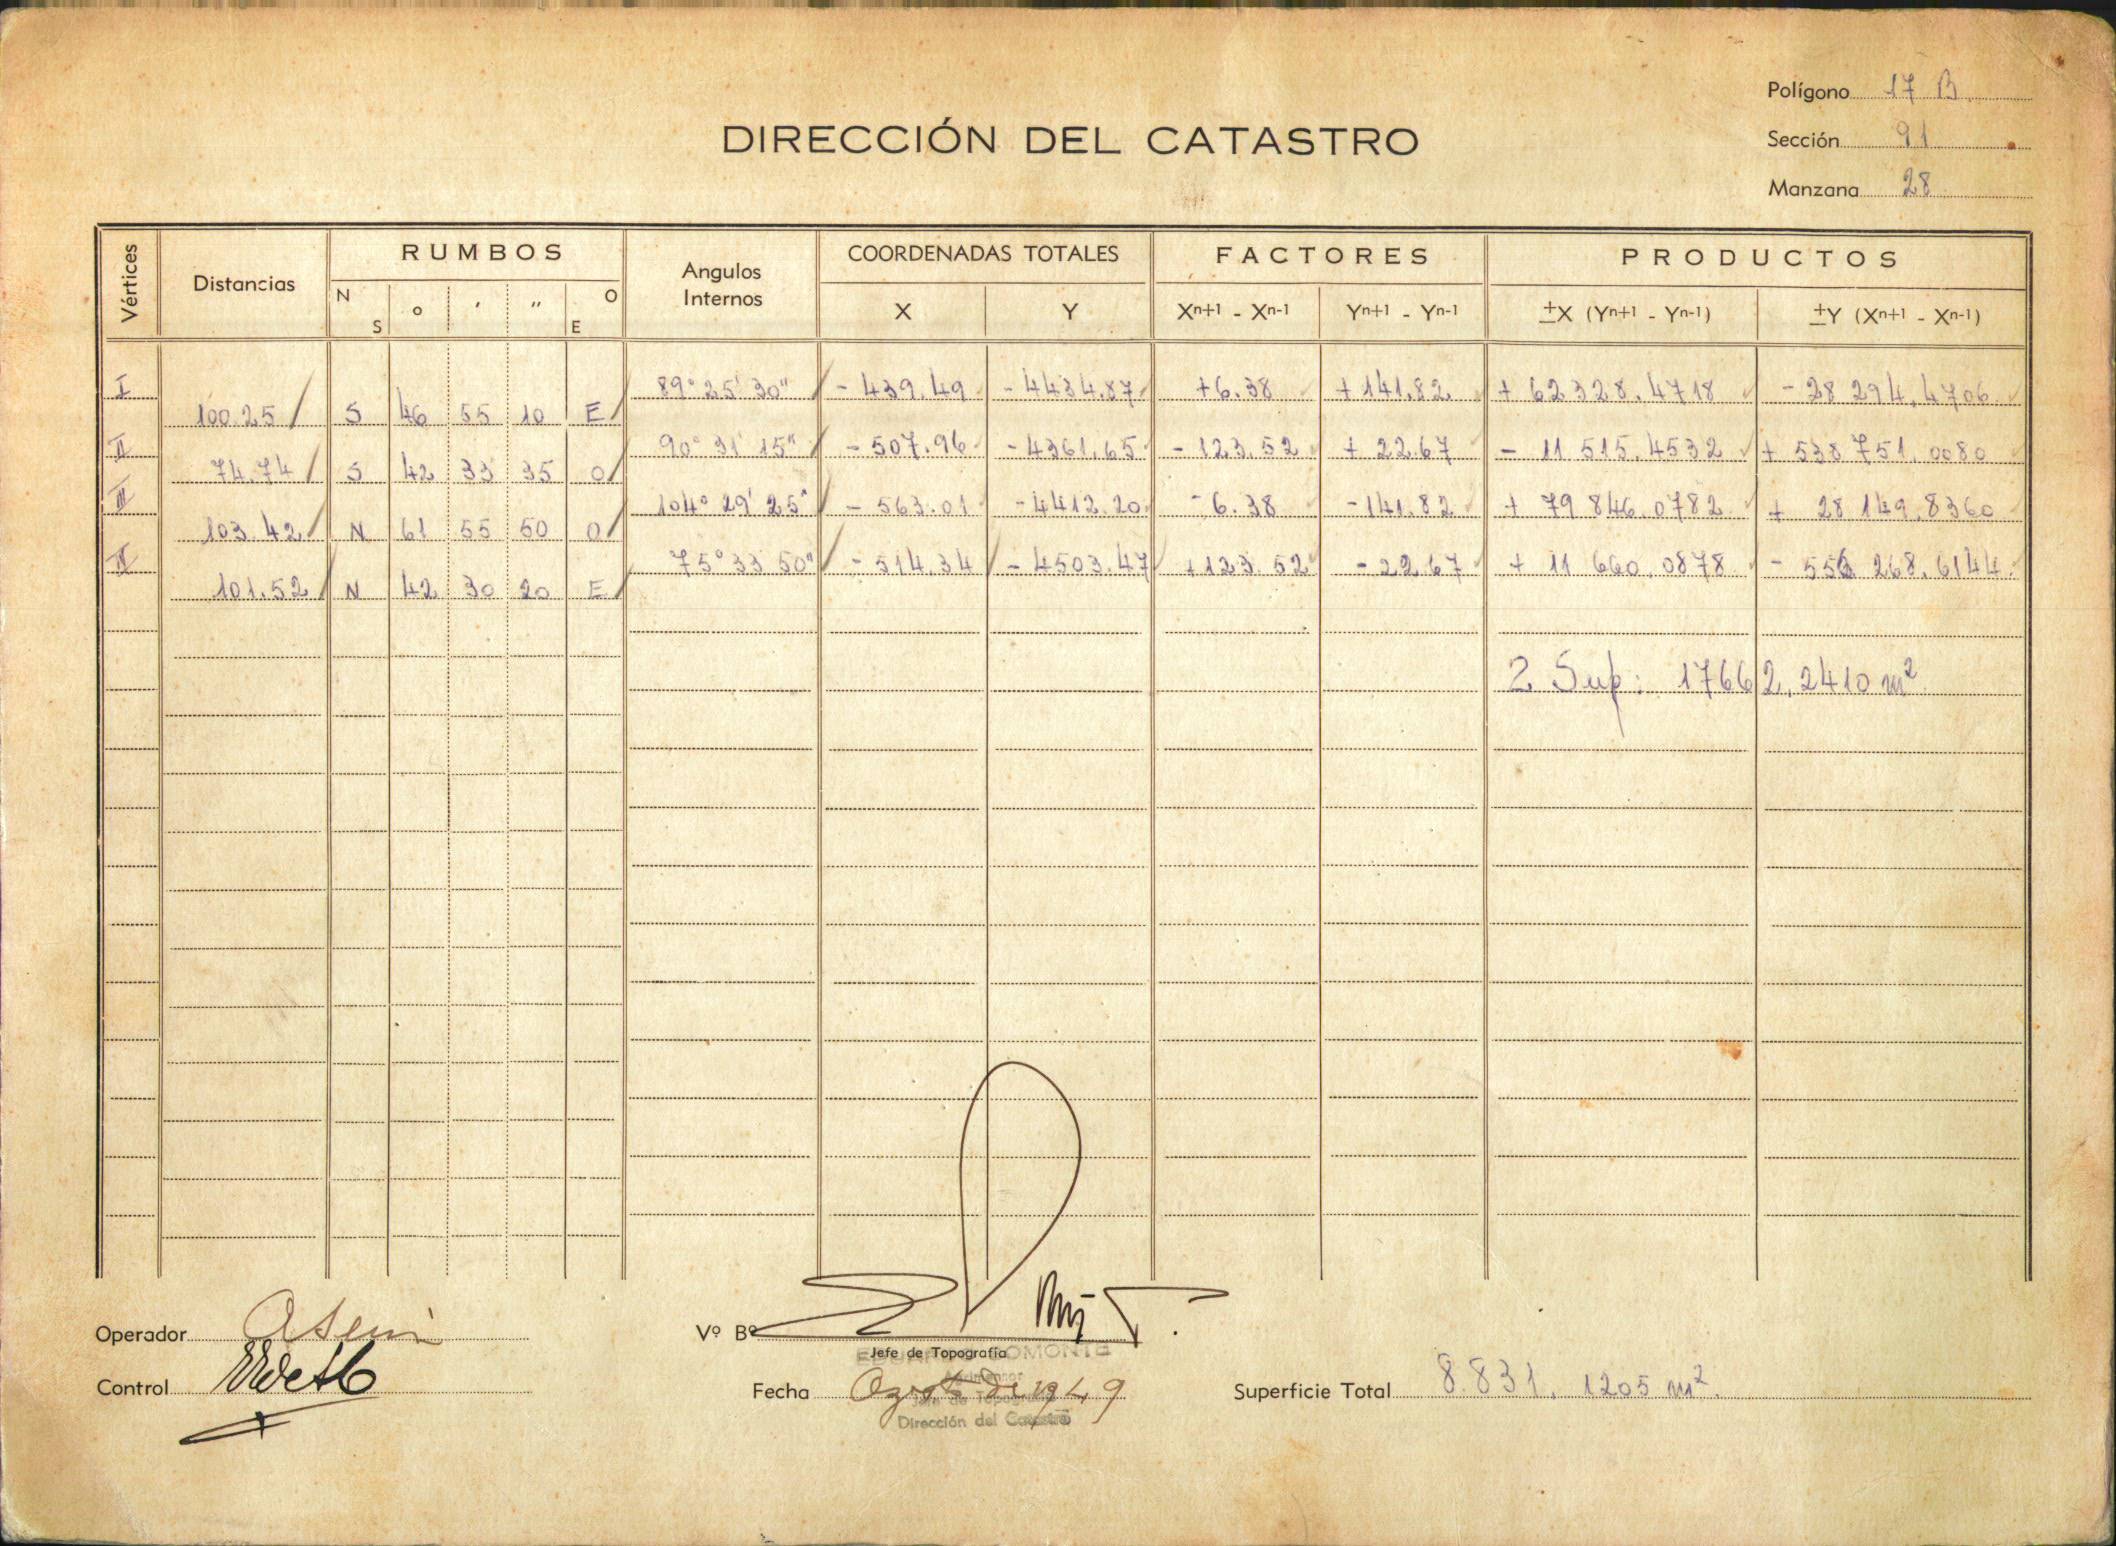 Polígono 17 B
DIRECCIÓN DEL CATASTRO
Sección 91
Manzana 28
Vértices Distancias RUMBOS Angulos Internos COORDENADAS TOTALES FACTORES PRODUCTOS
N S ° ' '' O E X Y Xn+1 - Xn-1 Yn+1 - Yn-1 ±X (Yn+1 - Yn-1) ±Y (Xn+1 - Xn-1)
I 89° 25' 30'' - 439.49 - 4434.87 +6.38 + 141.82 + 62328.4718 - 28 294.4706
100.25 S 46 55 10 E
II 90° 31' 15'' - 507.96 - 4361.65 - 123.52 + 22.67 - 11 515.4532 + 538 751.0080
74.74 S 42 33 35 O
III 104° 29' 25'' - 563.01 - 4412.20 - 6.38 - 141.82 + 79 846.0782 + 28 149.8360
103.42 N 61 55 50 O
IV 75° 33 50'' - 514.34 - 4503.47 +123.52 - 22.67 + 11 660.0878 - 556 268.6144
101.52 N 42 30 20 E
2 Sup: 17662,2410 m²
Operador
Vº Bº
Jefe de Topografía
Control
Fecha Agosto de 1949
Dirección del Catastro
Superficie Total 8.831, 1205 m².